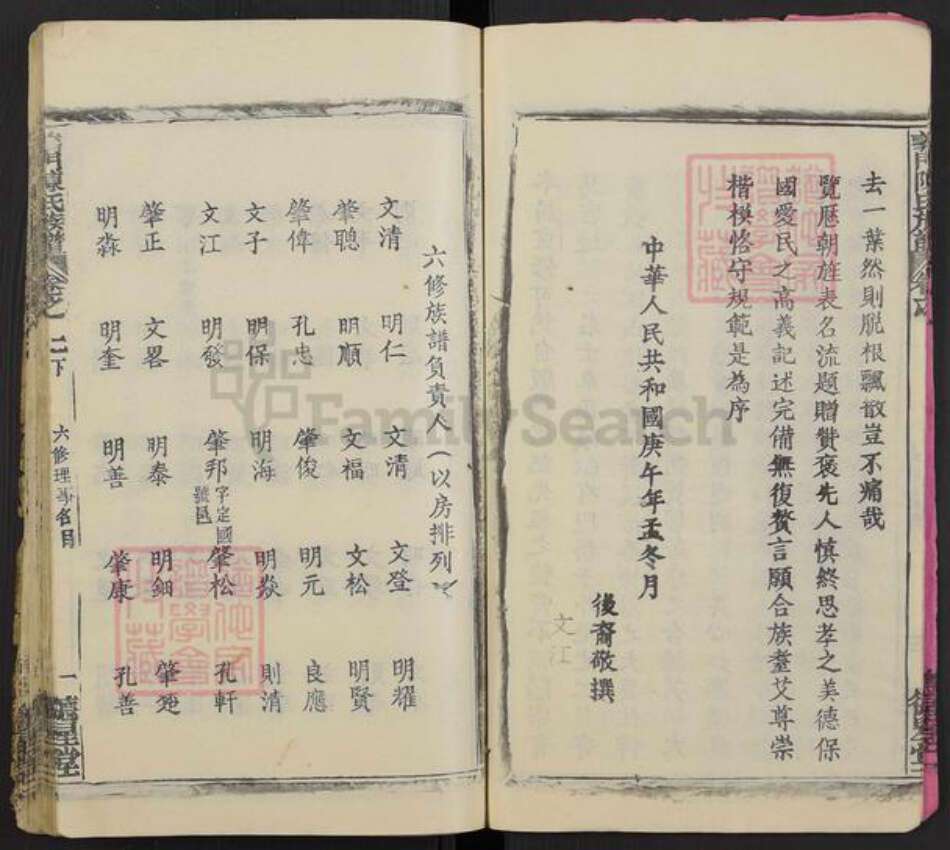 去一葉然則脱根飄散豈不痛哉
覽歷朝旌表名流題贈贊褒先人慎終思孝之美德保
國愛民之高義記述完備無復贅言願合族耋艾尊崇
楷模恪守規範是為序
中華人民共和國庚午年孟冬月
後裔敬撰
文江
德星堂
六修族譜負責人（以房排列）
文清 明仁 文清 文登 明耀
肇聰 明順 文福 文松 明賢
肇偉 孔忠 肇俊 明元 良應
文子 明保 明海 明焱 則清
文江 明發 肇邦字定國號邑 肇松 孔軒
肇正 文畧 明泰 明鈿 肇茺
明淼 明奎 明善 肇康 孔善
義門陳氏族譜 卷之二下 六修理事名目 一 德星堂
FamilySearch